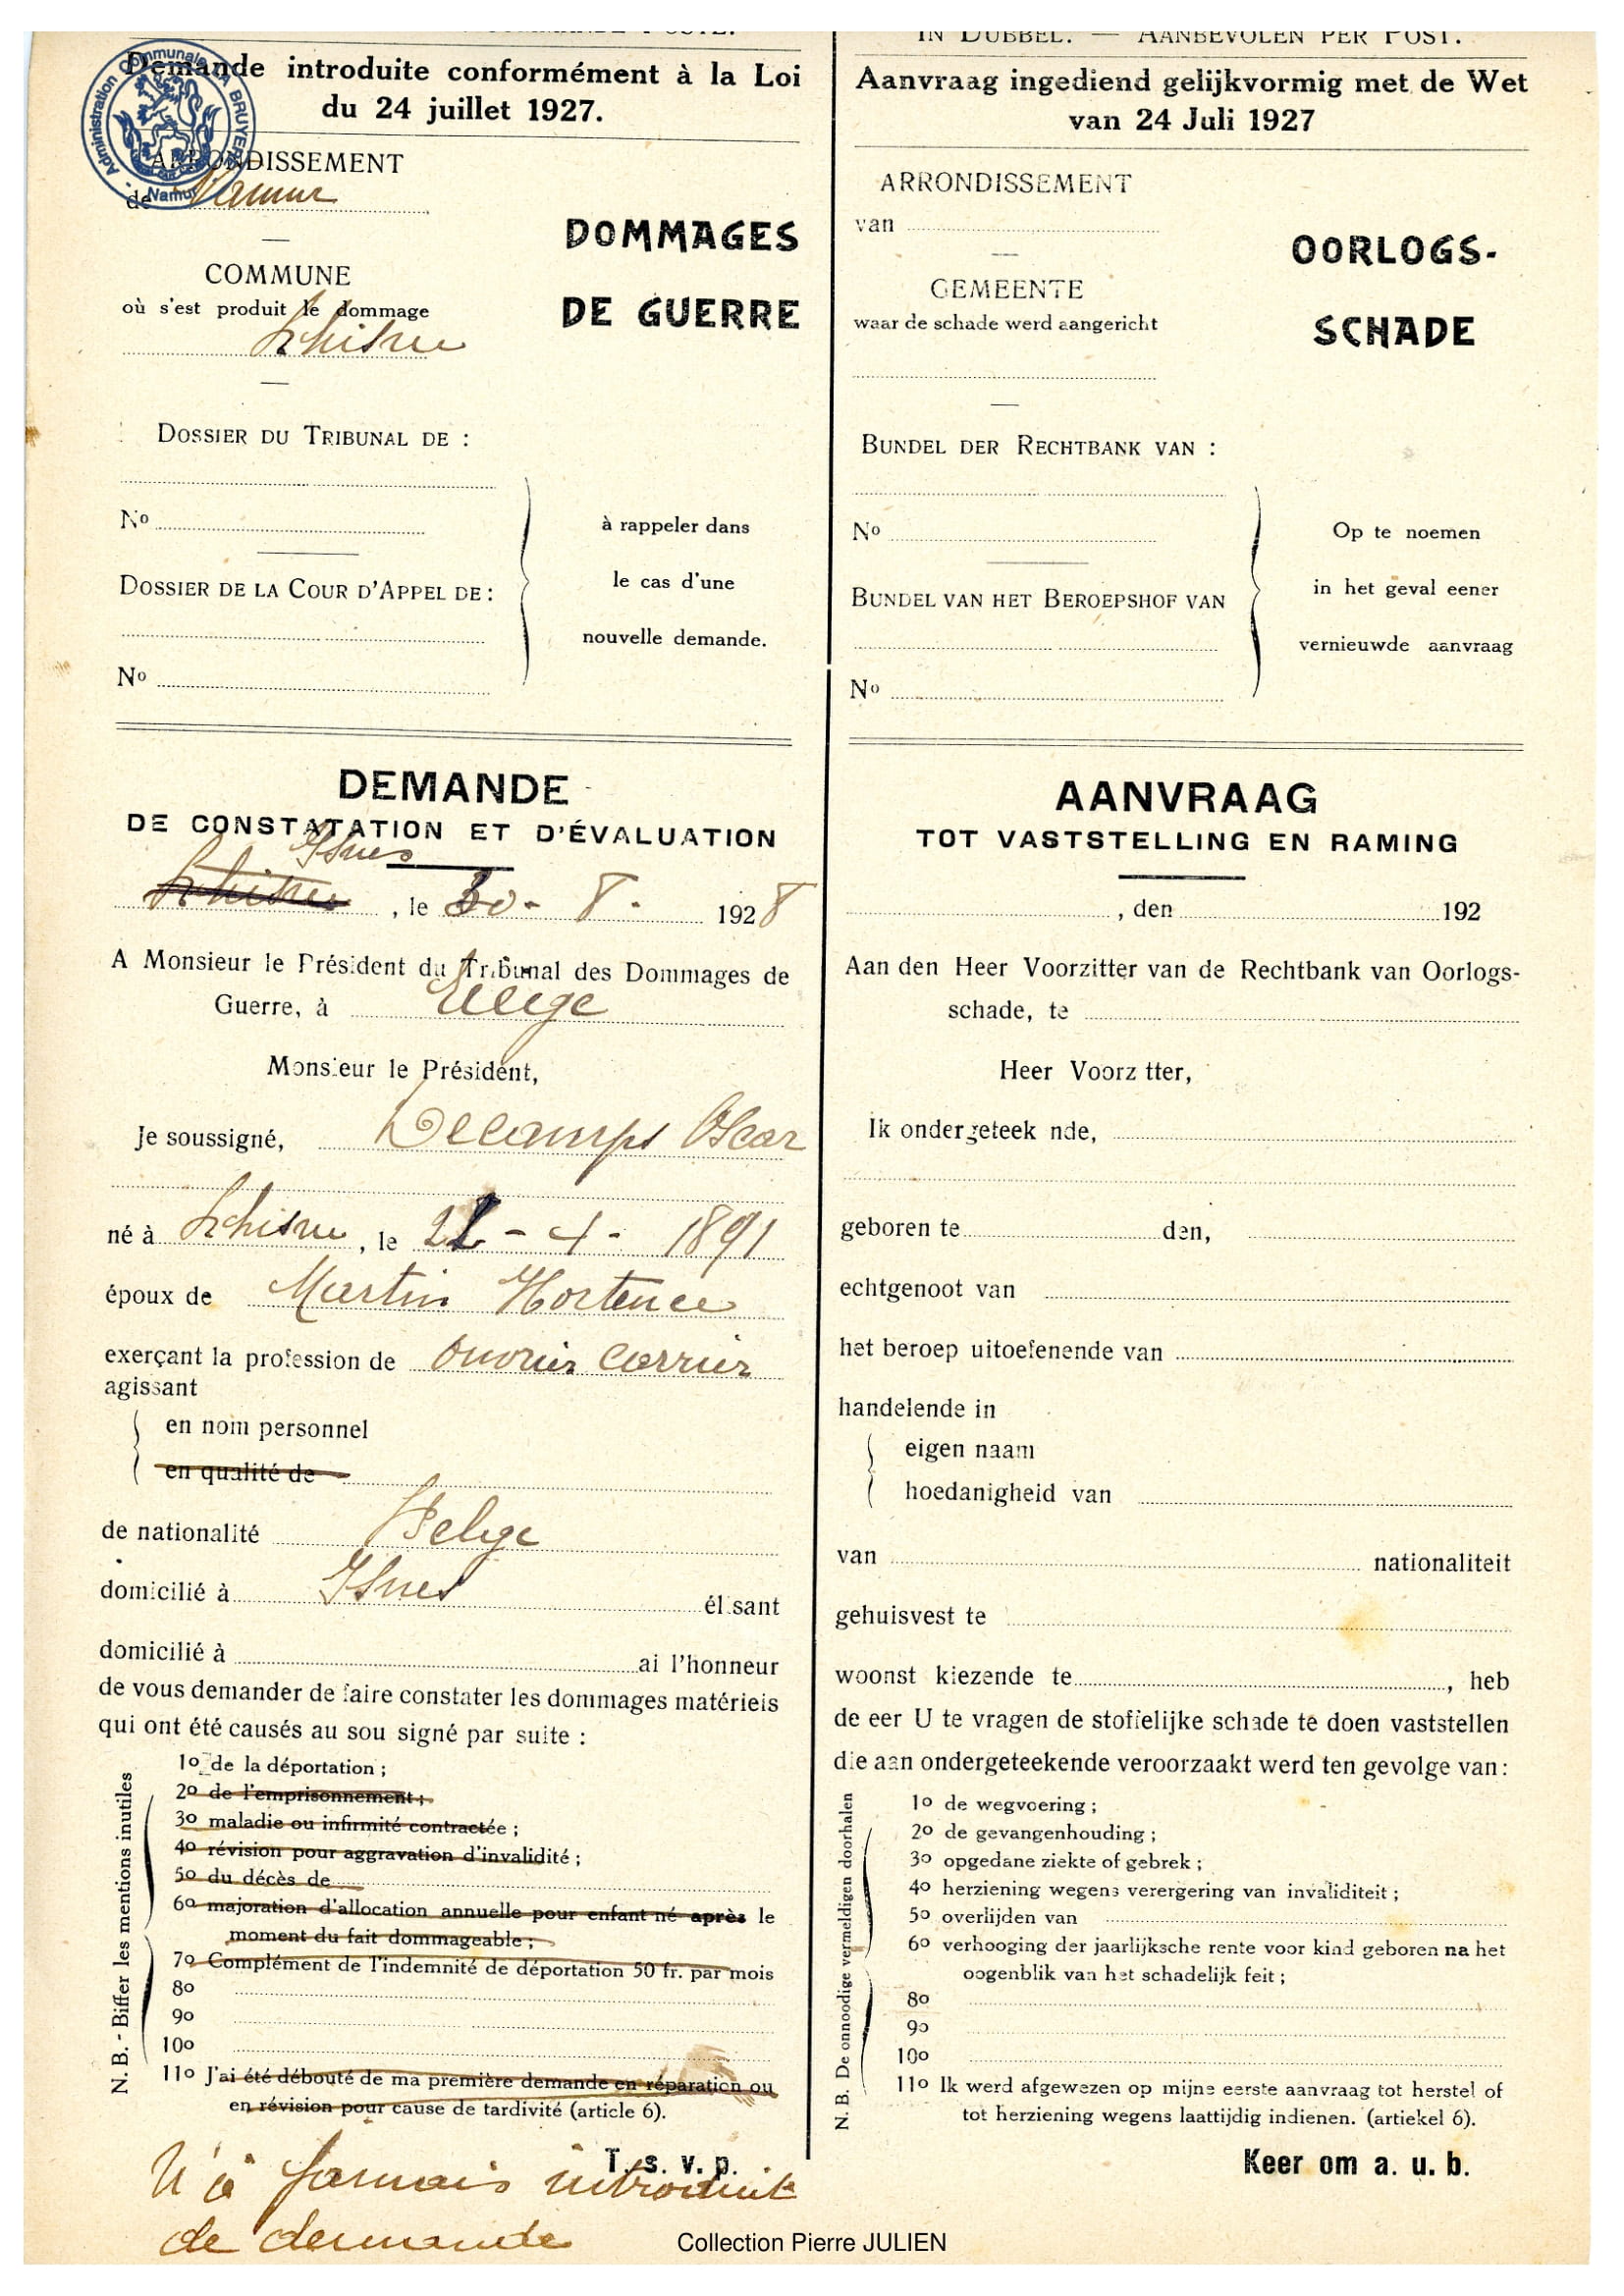 Demande introduite conformément à la Loi
du 24 juillet 1927.
Administration Communale LA BRUYERE
Namur
ARRONDISSEMENT
de Namur
COMMUNE
où s'est produit le dommage
Rhisne
DOMMAGES
DE GUERRE
DOSSIER DU TRIBUNAL DE :
No
DOSSIER DE LA COUR D'APPEL DE :
No
à rappeler dans
le cas d'une
nouvelle demande.
DEMANDE
DE CONSTATATION ET D'ÉVALUATION
Isnes
Rhisne, le 30 - 8 - 1928
A Monsieur le Président du Tribunal des Dommages de
Guerre, à Liège
Monsieur le Président,
Je soussigné, Decamps Oscar
né à Rhisne, le 22 - 4 - 1891
époux de Martin Hortence
exerçant la profession de Ouvrier Carrier
agissant
en nom personnel
en qualité de
de nationalité Belge
domicilié à Isnes élisant
domicilié à ai l'honneur
de vous demander de faire constater les dommages matériels
qui ont été causés au sou signé par suite :
N. B. - Biffer les mentions inutiles
1o de la déportation ;
2o de l'emprisonnement ;
3o maladie ou infirmité contractée ;
4o révision pour aggravation d'invalidité ;
5o du décès de
6o majoration d'allocation annuelle pour enfant né après le
moment du fait dommageable ;
7o Complément de l'indemnité de déportation 50 fr. par mois
8o
9o
10o
11o J'ai été débouté de ma première demande en réparation ou
en révision pour cause de tardivité (article 6).
T. s. v. p.
N'a jamais introduit
de demande
IN DUBBEL. — AANBEVOLEN PER POST.
Aanvraag ingediend gelijkvormig met de Wet
van 24 Juli 1927
ARRONDISSEMENT
van
GEMEENTE
waar de schade werd aangericht
OORLOGS-
SCHADE
BUNDEL DER RECHTBANK VAN :
No
BUNDEL VAN HET BEROEPSHOF VAN
No
Op te noemen
in het geval eener
vernieuwde aanvraag
AANVRAAG
TOT VASTSTELLING EN RAMING
, den 192
Aan den Heer Voorzitter van de Rechtbank van Oorlogs-
schade, te
Heer Voorz tter,
Ik ondergeteek nde,
geboren te den,
echtgenoot van
het beroep uitoefenende van
handelende in
eigen naam
hoedanigheid van
van nationaliteit
gehuisvest te
woonst kiezende te , heb
de eer U te vragen de stoffelijke schade te doen vaststellen
die aan ondergeteekende veroorzaakt werd ten gevolge van :
N. B. De onnoodige vermeldigen doorhalen
1o de wegvoering ;
2o de gevangenhouding ;
3o opgedane ziekte of gebrek ;
4o herziening wegens verergering van invaliditeit ;
5o overlijden van
6o verhooging der jaarlijksche rente voor kind geboren na het
oogenblik van het schadelijk feit ;
8o
9o
10o
11o Ik werd afgewezen op mijne eerste aanvraag tot herstel of
tot herziening wegens laattijdig indienen. (artiekel 6).
Keer om a. u. b.
Collection Pierre JULIEN